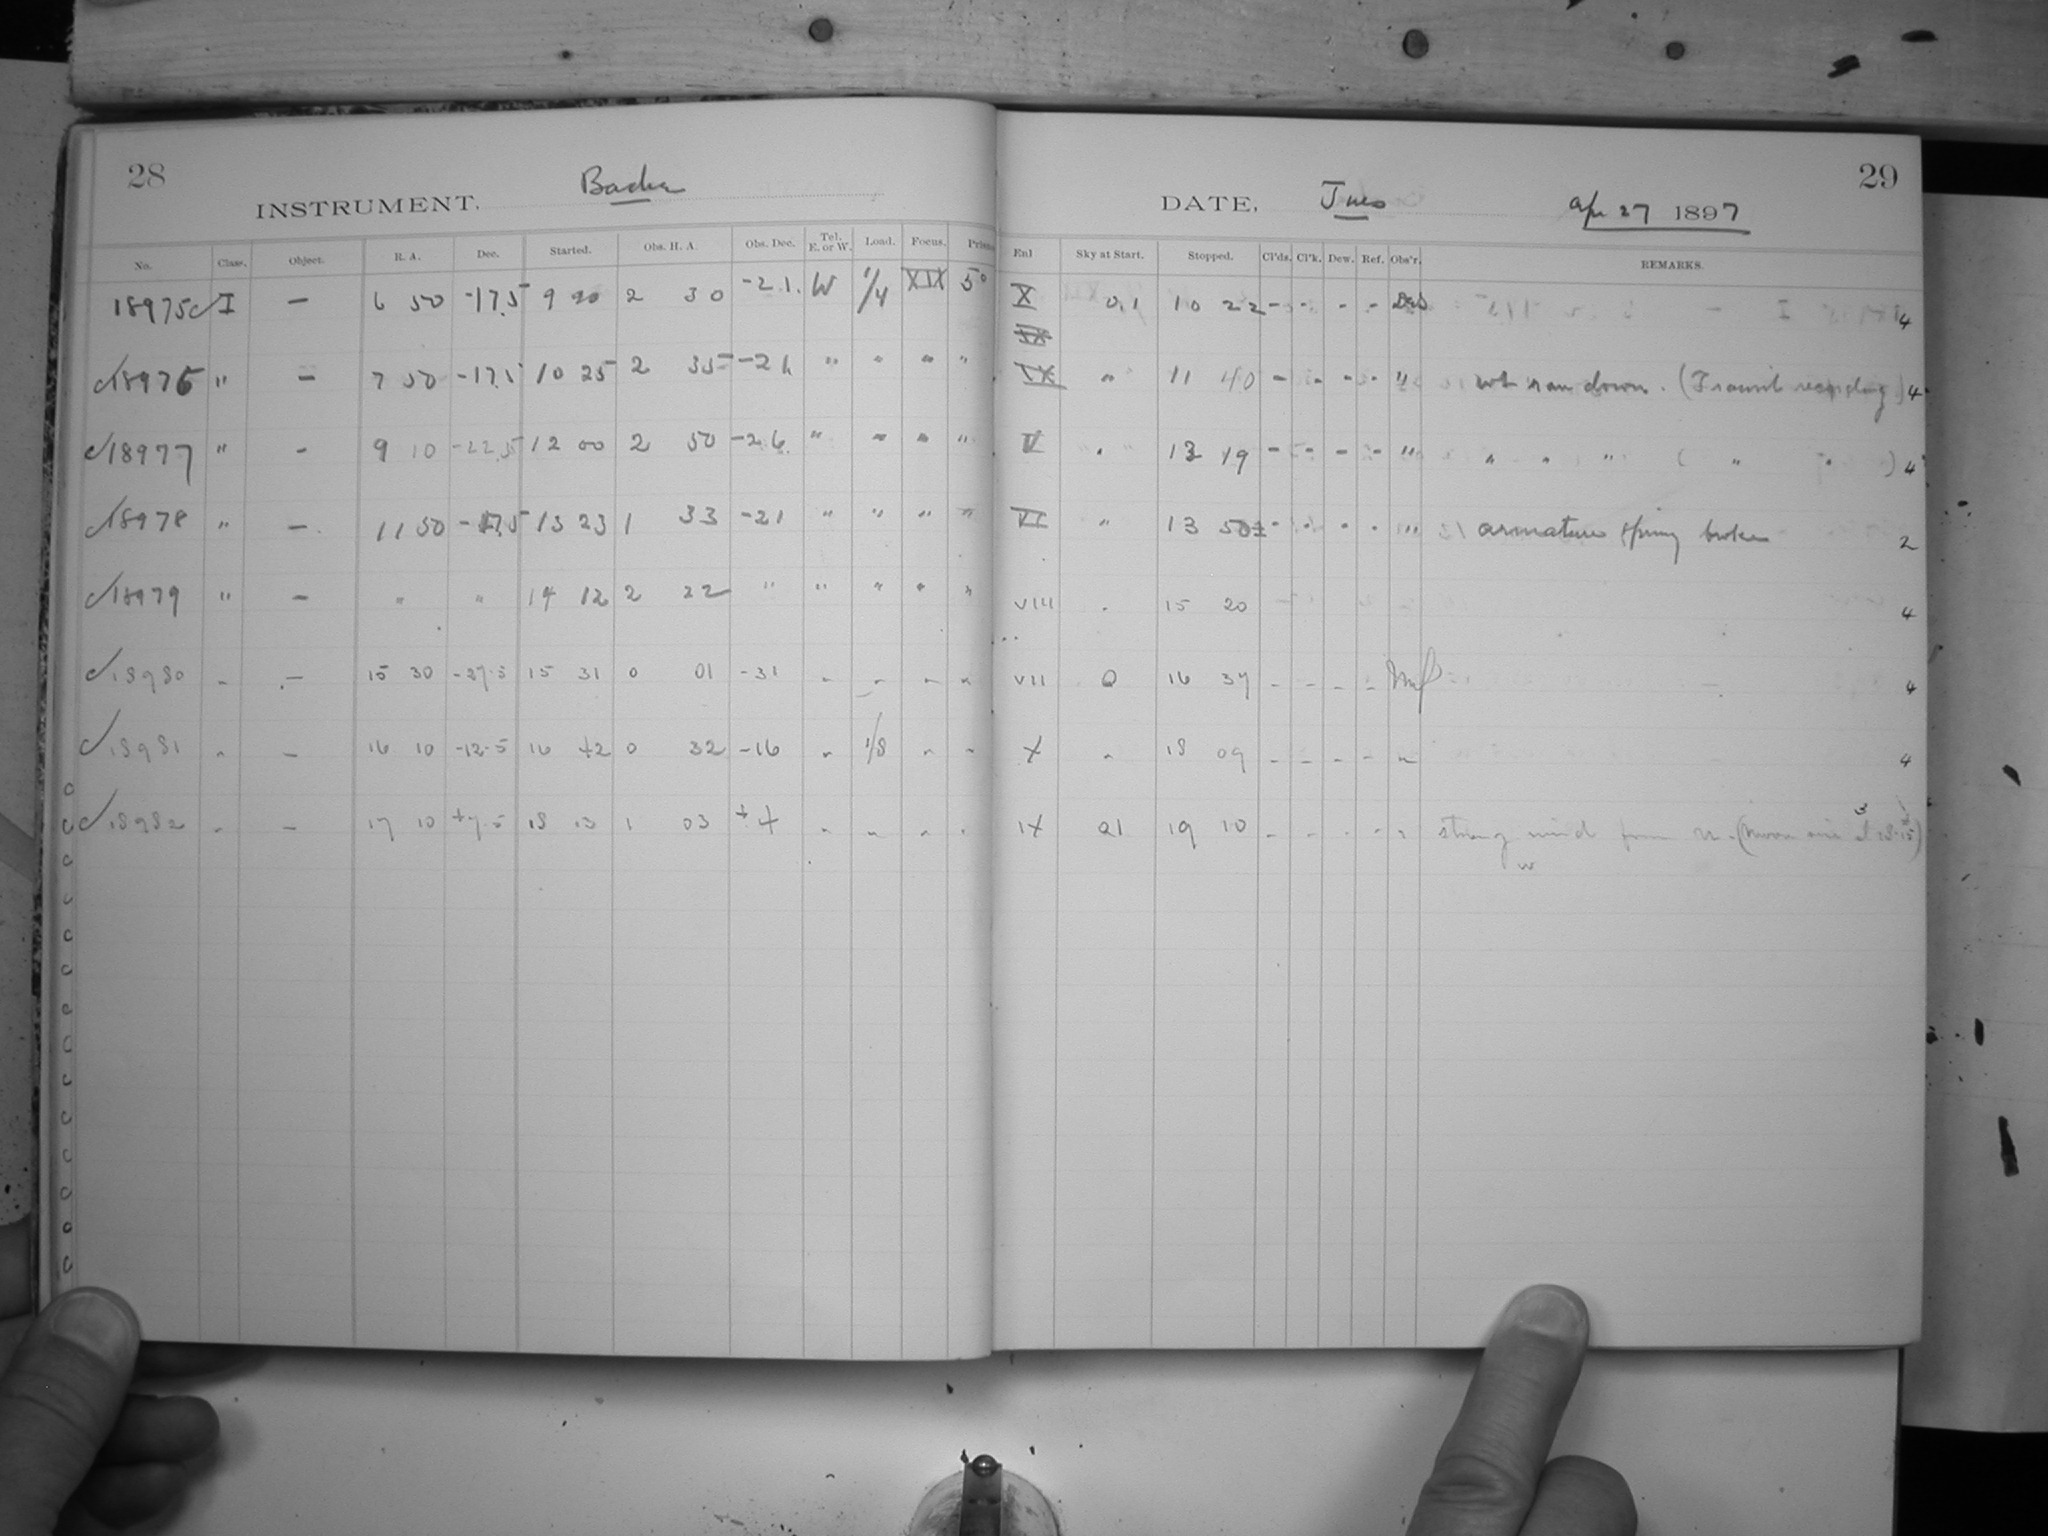 28
INSTRUMENT. Bache
No. Class. Object. R. A. Dec. Started. Obs. H. A. Obs. Dec. Tel. E. or W. Load. Focus. Prism
18975 I — 6 50 -17.5 9 20 2 30 -21. W 1/4 XIX 5°
18976 " — 7 50 -17.5 10 25 2 35 -21 " " " "
18977 " - 9 10 -22.5 12 00 2 50 -26. " " " "
18978 " — 11 50 -17.5 13 23 1 33 -21 " " " "
18979 " — " " 14 12 2 22 " " " " "
18980 " — 15 30 -27.5 15 31 0 01 -31 " " " "
18981 " — 16 10 -12.5 16 42 0 32 -16 " 1/8 " "
18982 " — 17 10 +7.5 18 13 1 03 +4 " " " "
29
DATE, Tues Apr 27 1897
Enl Sky at Start. Stopped. Cl'ds. Cl'k. Dew. Ref. Obs'r. REMARKS.
X 0.1 10 22 - - - - 4
IX " 11 40 - - - - " wt ran down. (Transit recording) 4
V " " 13 19 - - - - " " " " ( " " ) 4
VI " 13 50± - - - - " armature spring broken 2
VIII " 15 20 4
VII 0 16 37 - - - - 4
X " 18 09 - - - - " 4
IX 01 19 10 - - - - " strong wind from